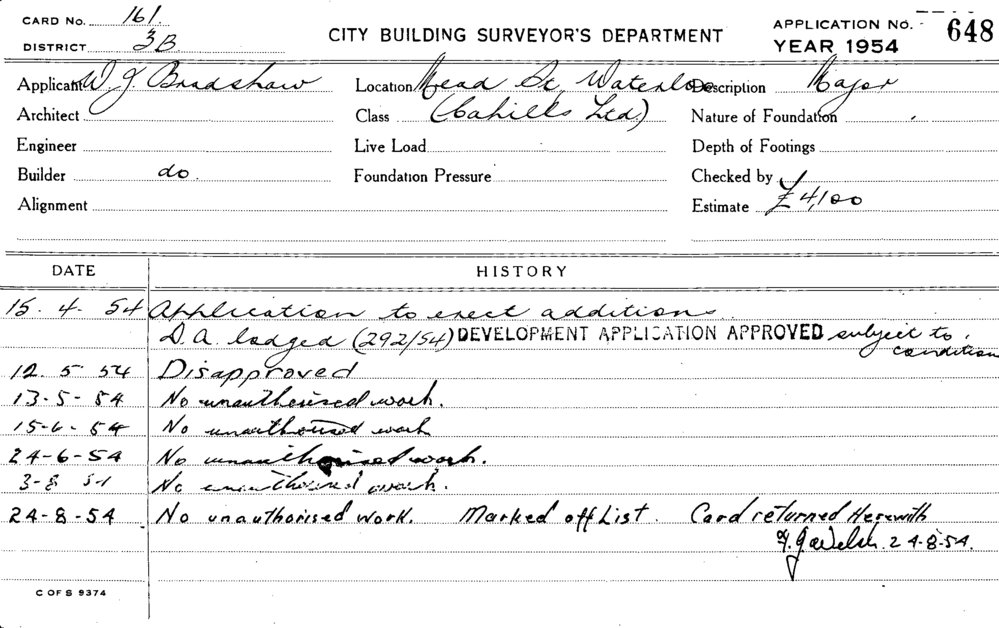 CARD No. 161.
DISTRICT 3B
CITY BUILDING SURVEYOR'S DEPARTMENT
APPLICATION No. 648
YEAR 1954
Applicant W. J. Bradshaw Location Mead St. Waterloo Description Major
Architect Class (Cahills Ltd.) Nature of Foundation
Engineer Live Load Depth of Footings
Builder do. Foundation Pressure Checked by
Alignment Estimate £4,100
DATE HISTORY
15. 4. 54 Application to erect additions.
D. A. lodged (292/54) DEVELOPMENT APPLICATION APPROVED subject to
condition
12. 5 54 Disapproved
13-5-54 No unauthorised work.
15-6-54 No unauthorised work
24-6-54 No unauthorised work.
3-8 54 No unauthorised work.
24-8-54 No unauthorised work. Marked off List. Card returned Herewith
24-8-54.
C OF S 9374